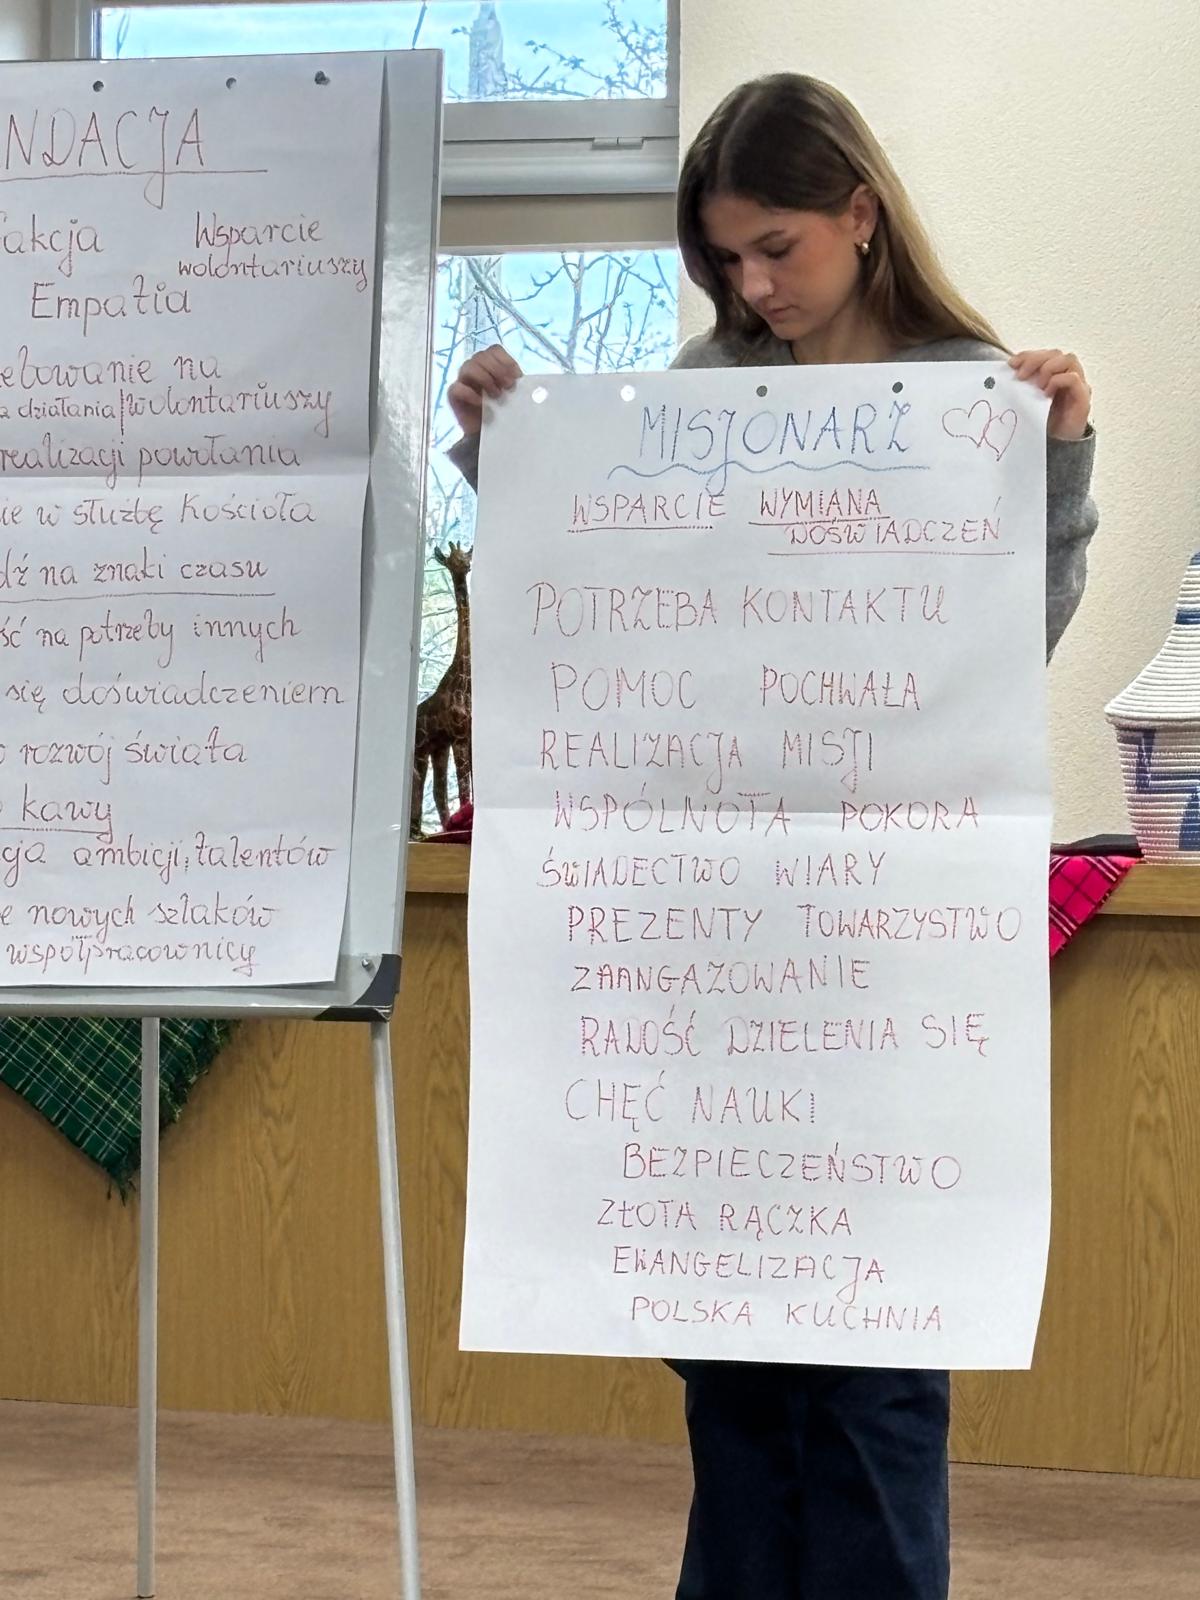 NDACJA
akcja Wsparcie
wolontariuszy
Empatia
ebowanie na
a działania/wolontariuszy
realizacji powołania
ie w służbę Kościoła
dź na znaki czasu
ść na potrzeby innych
się doświadczeniem
o rozwój świata
o kawy
cja ambicji, talentów
e nowych szlaków
współpracownicy
MISJONARZ
WSPARCIE WYMIANA
DOŚWIADCZEŃ
POTRZEBA KONTAKTU
POMOC POCHWAŁA
REALIZACJA MISJI
WSPÓLNOTA POKORA
ŚWIADECTWO WIARY
PREZENTY TOWARZYSTWO
ZAANGAZOWANIE
RADOŚĆ DZIELENIA SIĘ
CHĘĆ NAUKI
BEZPIECZEŃSTWO
ZŁOTA RĄCZKA
EWANGELIZACJA
POLSKA KUCHNIA